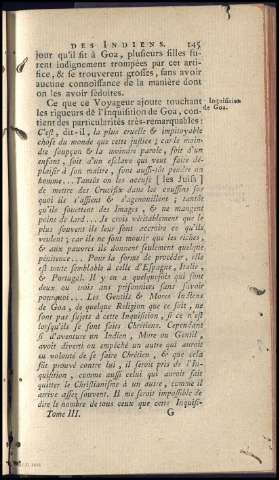 DES INDIENS. 145
jour qu'il fit à Goa, plusieurs filles fu-
rent indignement trompées par cet arti-
fice, & se trouverent grosses, sans avoir
aucune connoissance de la manière dont
on les avoit séduites.
Ce que ce Voyageur ajoute touchant
les rigueurs de l'Inquisition de Goa, con-
tient des particularités très-remarquables :
Inquisition
de Goa.
C'est, dit-il, la plus cruelle & impitoyable
chose du monde que cette justice ; car le moin-
dre soupçon & la moindre parole, soit d'un
enfant, soit d'un esclave qui veut faire dé-
plaisir à son maître, font aussi-tôt pendre un
homme.... Tantôt on les accuse [les Juifs]
de mettre des Crucifix dans les coussins sur
quoi ils s'assient & s'agenouillent ; tantôt
qu'ils fouettent des Images, & ne mangent
point de lard.... Je crois véritablement que le
plus souvent ils leur font accroire ce qu'ils
veulent ; car ils ne font mourir que les riches,
& aux pauvres ils donnent seulement quelque
pénitence... Pour la forme de procéder, elle
est toute semblable à celle d'Espagne, Italie
& Portugal. Il y en a quelquefois qui sont
deux ou trois ans prisonniers sans savoir
pourquoi.... Les Gentils & Mores Indiens
de Goa, de quelque Religion que ce soit, ne
sont pas sujets à cette Inquisition, si ce n'est
lorsqu'ils se sont faits Chrétiens. Cependant
si d'aventure un Indien, More ou Gentil,
avoit diverti ou empêché un autre qui auroit
eu volonté de se faire Chrétien, & que cela
fût prouvé contre lui, il seroit pris de l'In-
quisition, comme aussi celui qui auroit fait
quitter le Christianisme à un autre, comme il
arrive assez souvent. Il me seroit impossible de
dire le nombre de tous ceux que cette Inquisi-
Tome III. G